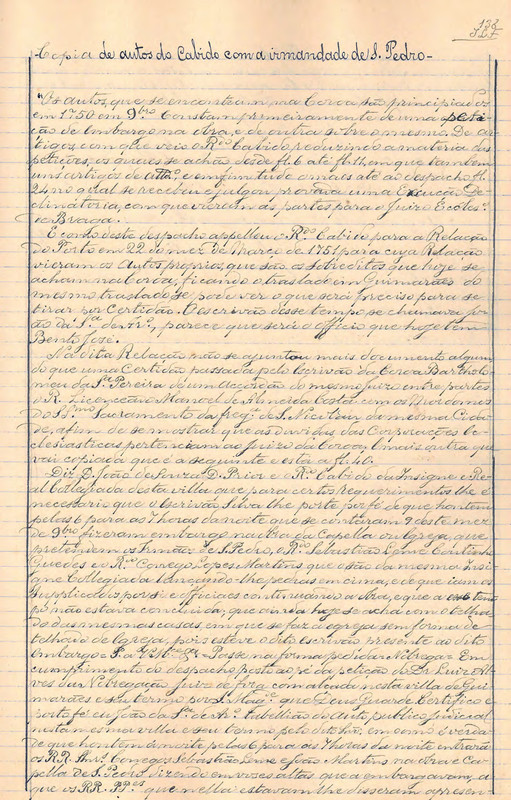 138
Copia de autos do Cabido com a irmandade de S. Pedro-
"Os autos, que se encontram na Coroa são principiados
em 1750 em 9bro Constam primeiramente de uma peti-
ção de Embargo na obra, e de outra sobre o mesmo. De ar-
tigos, com que veio o Rdo Cabido produzindo a materia das
petições, os quaes se achão desde fl. 6 até fl. 11, em que tambem
uns artigos de e emfim tudo o mais até ao despacho fl.
24 no qual se recebeu e julgou provada uma Excução De-
clinatoria, com que vieram as partes para o Juizo Ecoles.º
de Braga.
E conto desta despacho appelleu o Rdo Cabido para a Relação
do Porto em 22 do mez de Março de 1751 para cuja Relação
vieram os Autos proprios, que são os sobreditos que hoje se
acham na Coroa, ficando o traslado em Guimarães do
mesmo traslado se pode ver o que será preciso para se
tirar por Certidão. O escrivão desse tempo se chamava Jo-
ão da S.ª de , parece que será o officio que hoje tem
Bento José.
Na dita Relação não se ajuntou mais documento algum
do que uma Certidão passada pelo Escrivão da Coroa Bartholo-
meu da S.ª Pereira de um Accordão do mesmo juizo entre partes
o R. Licenceado Manoel de Almeida Costa com os Mordomos
do Sacramento da freg.ª de S. Nicolau da mesma Cida-
de, afim de se mostrar que as duvidas das Corporações Ec-
clesiasticas pertenciam ao Juizo da Coroa, E mais outra que
vai copiada que é a seguinte e esta a fl. 40.
Diz D. João de Souza D. Prior e R.º Cabido da Insigne e Re-
al Collegiada desta villa que para certos requerimentos lhe é
necessario que o Escrivão Silva lhe porte por fé de que hontem
pelas 6 para as 7 horas da noite que se contaram 9 deste mez
de 9bro fizeram embargo na obra da Capella ou Igreja, que
pretendem os Irmãos de S. Pedro, o R.do Sebastião Leme Coutinho
Guedes e o R.do Conego Lopes Martins que o são da mesma Insi-
gne Collegiada lançando-lhe pedras em cima, e de que iam os
Supplicados por si e officiaes continuando a obra, e que a esse tem-
po não estava concluida, que ainda hoje se acha com o telha-
do das mesmas casas, em que se faz a egreja sem forma de
telhado de Igreja, pois esteve o dito escrivão presente ao dito
embargo = Passe na forma pedida. Nobrega = Em
cumprimento do despacho posto ao pé da petição do Dr. Luiz Al-
ves da Nobrega juiz de fora com alçada nesta villa de Gui-
marães e seu termo por S. Mag.e que Deus Guarde. Certifico e
porto fé eu João da S.ª de tabellião do auto publico judicial
nesta mesma villa e seu termo pelo dito Snr. em como é verda-
de que hontem de noite pelas 6 para as 7 horas da noite entrarão
os RR. Conegos Sebastião Leme e João Martins na obra e Ca-
pella de S. Pedro, dizendo em vozes altas que a embargavam, a
que os RR. que nella estavam lhe disseram apresen-